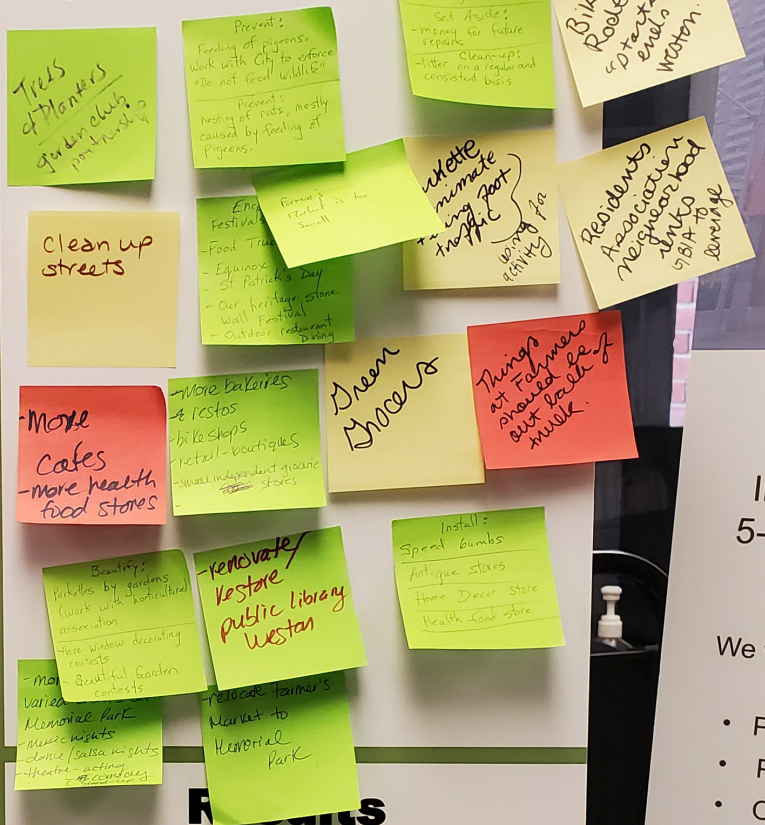 Trees
& Planters
garden club
partnership
Prevent:
Feeding of pigeons.
Work with City to enforce
"Do not feed wildlife"
Prevent:
nesting of rats, mostly
caused by feeding of
pigeons.
Set Aside:
- money for future
repairs
Clean-up:
- litter on a regular and
consistent basis
events
Weston.
Clean up
streets
Festivals
- Food
- Equinox
- St Patrick's Day
- Our heritage stone
Wall Festival
- Outdoor restaurant
Dining
Farmer's
Market is too
small
traffic
using for
activity
Residents
Association
neighborhood
BIA to
- More
cafes
- more health
food stores
- More bakeires
& restos
- bike shops
- retail - boutiques
- small independent grocerie
stores
-
Green
Grocers
Things
at Farmers
should be
out back of
Beautify:
Parkettes by gardens
(work with horticultural
association
- Have window decorating
contests
- Beautiful Garden
contests
- renovate/
restore
public library
Weston
Install:
Speed bumbs
Antique stores
Home Decor Store
Health-food store
varied
Memorial Park
- music nights
- dance/salsa nights
- theatre - acting
- relocate farmer's
Market to
Memorial
Park
5-
We